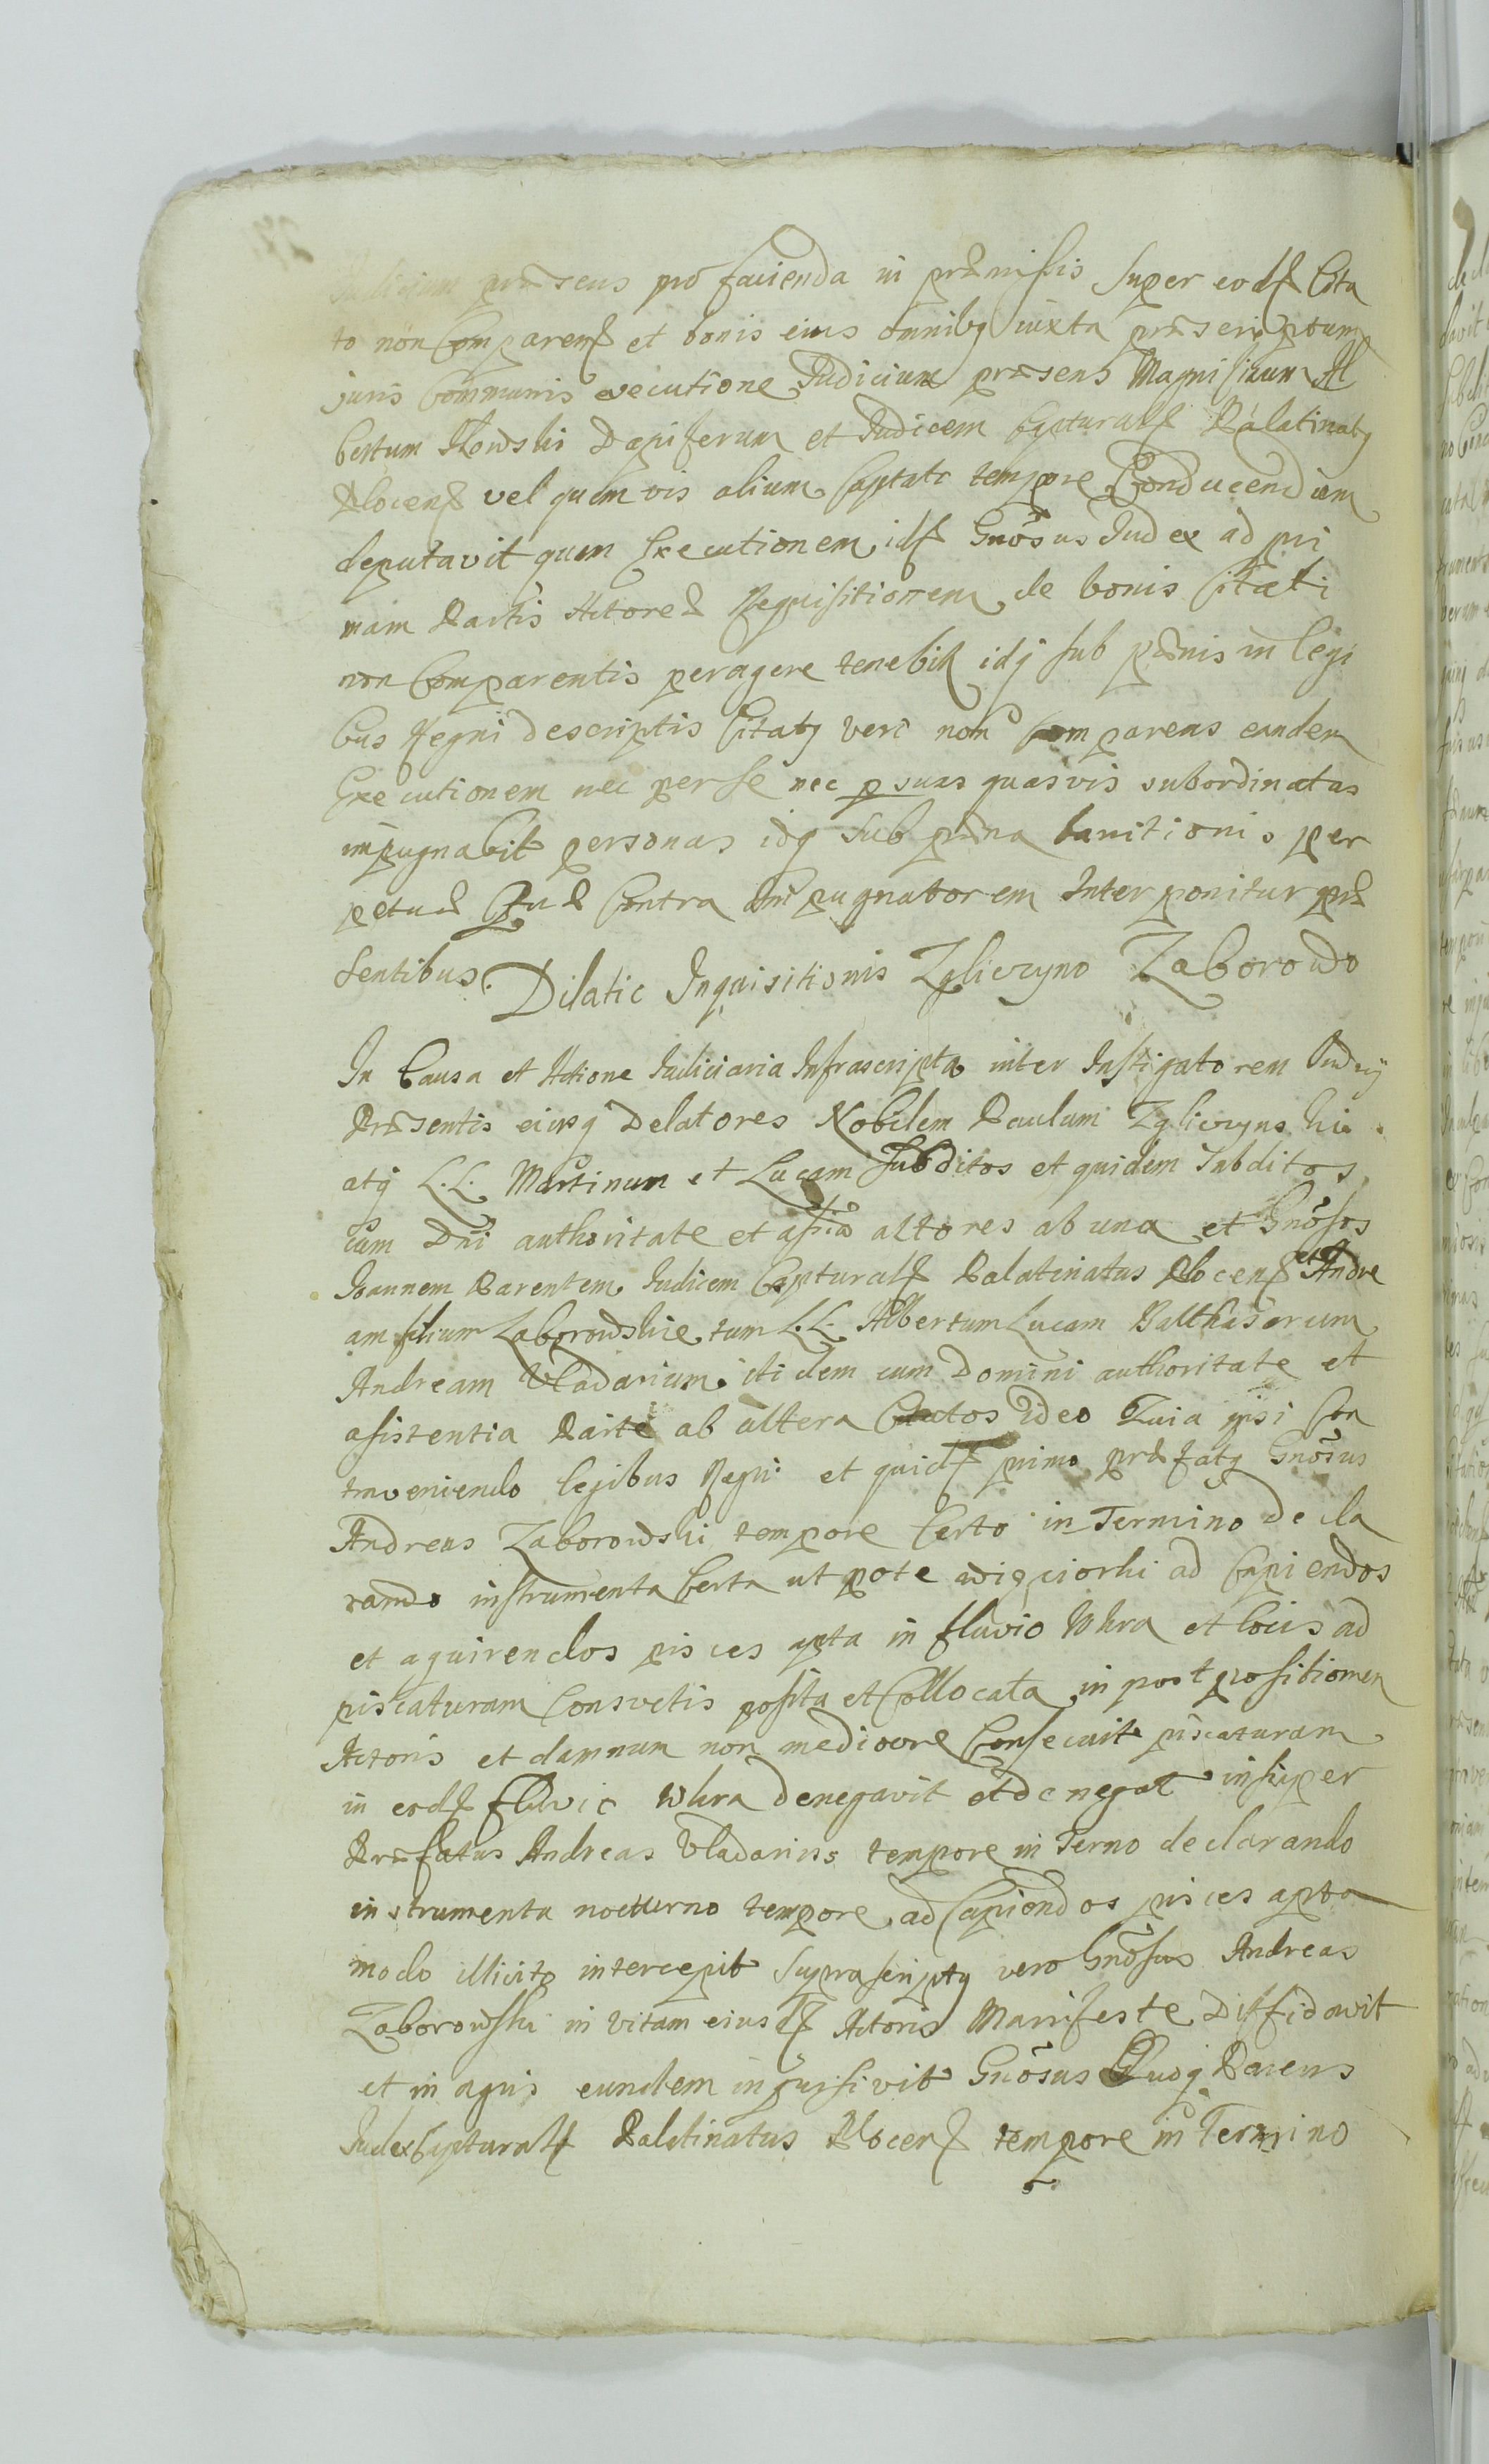 Judicium præsens pro facienda in præmissis super eod Cita
to non Comparen et bonis eius omnibq iuxta præscriptum
juris Communis executione Judicium præsens Magnificum Al
bertum Dapiferum et Judicem Captural Palatinatq
Plocen vel quemvis alium Captatc tempore Conducendum
deputavit quam Executionem id Gnosus Judex ad pri
mam Partis Actoreæ Requisitionem de bonis Citati
non Comparentis peragere tenebit idq sub pænis in legi
bus Regni descriptis Citatq vero non Comparens eandem
Executionem nec per se nec p suas quasvis subordinatas
impugnabit personas idq sub pæna banitionis per
petuæ Quæ Contra impugnatorem Interponitur præ
sentibus.
Dilatio Inquisitionis Zgliczyno Zaborowo
In Causa et Actione Judiciaria Infrascripta inter Instigatorem Judicÿ
Præsentis eiusq Delatores Nobilem Paulum Zgliczyns
atq L.L. Martinum et Lucam Subditos et quidem Subditos
cum Dni authoritate et astia actores ab una et Gnosos
Joannem Parentem Judicem Captural Palatinatus Plocen et Andre
am filium Zaborowskie tum L.L. Albertum Lucam Balthasarum
Andream Vladarium itidem cum Domini authoritate et
asistentia Parte ab altera Citatos ideo Quia ipsi Con
traveniendo legibus Regni et quid primo præfatq Gnosus
Andreas Zaborowski tempore Certo in Termino decla
rando instrumenta Certa utpote więciorki ad Capiendos
et aquirendos pisces apta in fluvio Wkra et locis ad
piscaturam Consvetis posita et Collocata in postpositionem
Actoris et damnum non mediocre Consecuit piscaturam
in eod fluvio Wkra denegavit et denegat insuper
Præfatus Andreas Vladarius tempore in Termo declarando
instrumenta nocturno tempore ad Capiendos pisces apta
modo illicito intercepit suprascriptq vero Gnosus Andreas
Zaborowski in vitam eiusd Actoris Manifeste Diffidavit
et in agris eundem Gnosus Quoq Parens
Judex Captural Palatinatus Plocen tempore in Termino